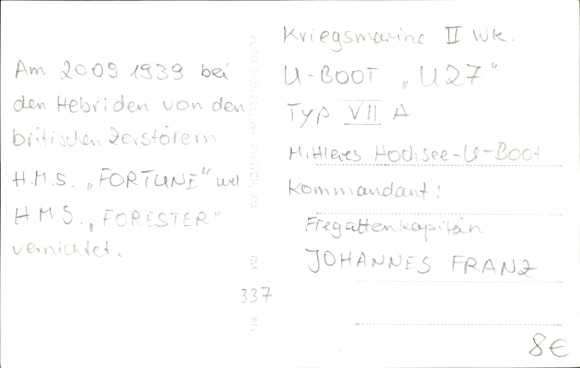 Am 2009 1939 bei
den Hebriden von den
britischen Zerstörern
H.M.S. „FORTUNE" und
H.M.S. „FORESTER"
vernichtet.
Kriegsmarine II WK.
U-BOOT „U27"
TYP VII A
Mittleres Hochsee-U-Boot
Kommandant:
Fregattenkapitän
JOHANNES FRANZ
337
8€